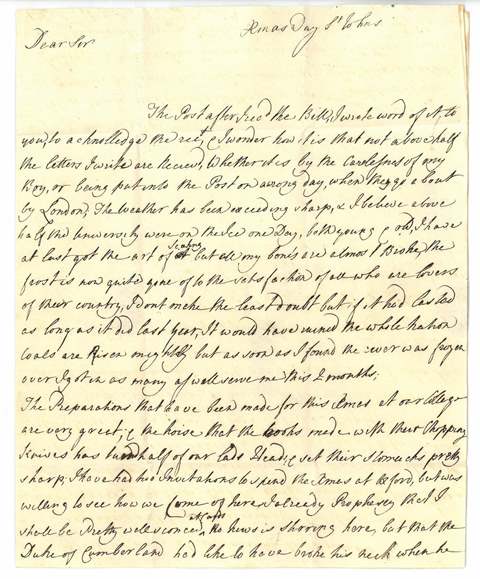 Xmas Day St Johns
Dear Sir
The Post after I recd the Bill, I wrote word of it, to
you, to acknolledge the rect, & I wonder how it is that not above half
the letters I write are Receved, Whether it is by the Carelesness of my
Boy, or being put into the Post on a wrong day, when they go about
by London; The Weather has been exceeding sharp, & I believe above
half the University were on the Ice one Day, both young & old, I have
at last got the art of Scating but all my bones are almost Broke, the
frost is now quite gone of to the Satisfaction of all who are lovers
of their country, I dont make the least doubt but if it had lasted
as long as it did last year, It would have ruined the whole nation
Coals are Risen mightily but as soon as I found the river was frozen
over I got in as many as will serve me this 2 months;
The Preparations that have been made for this Xmas at our College
are very great; & the noise that the Cooks made with their Chopping
Knives has turnd half of our Lads Heads, & set their stomachs pretty
sharp; I have had two Invitations to spend the Xmas at Oxford, but was
willing to see how we come of here, I already Prophesey that I
shall be Pretty well sconced at Cards, no news is stirring here, but that the
Duke of Cumberland had like to have broke his neck when he